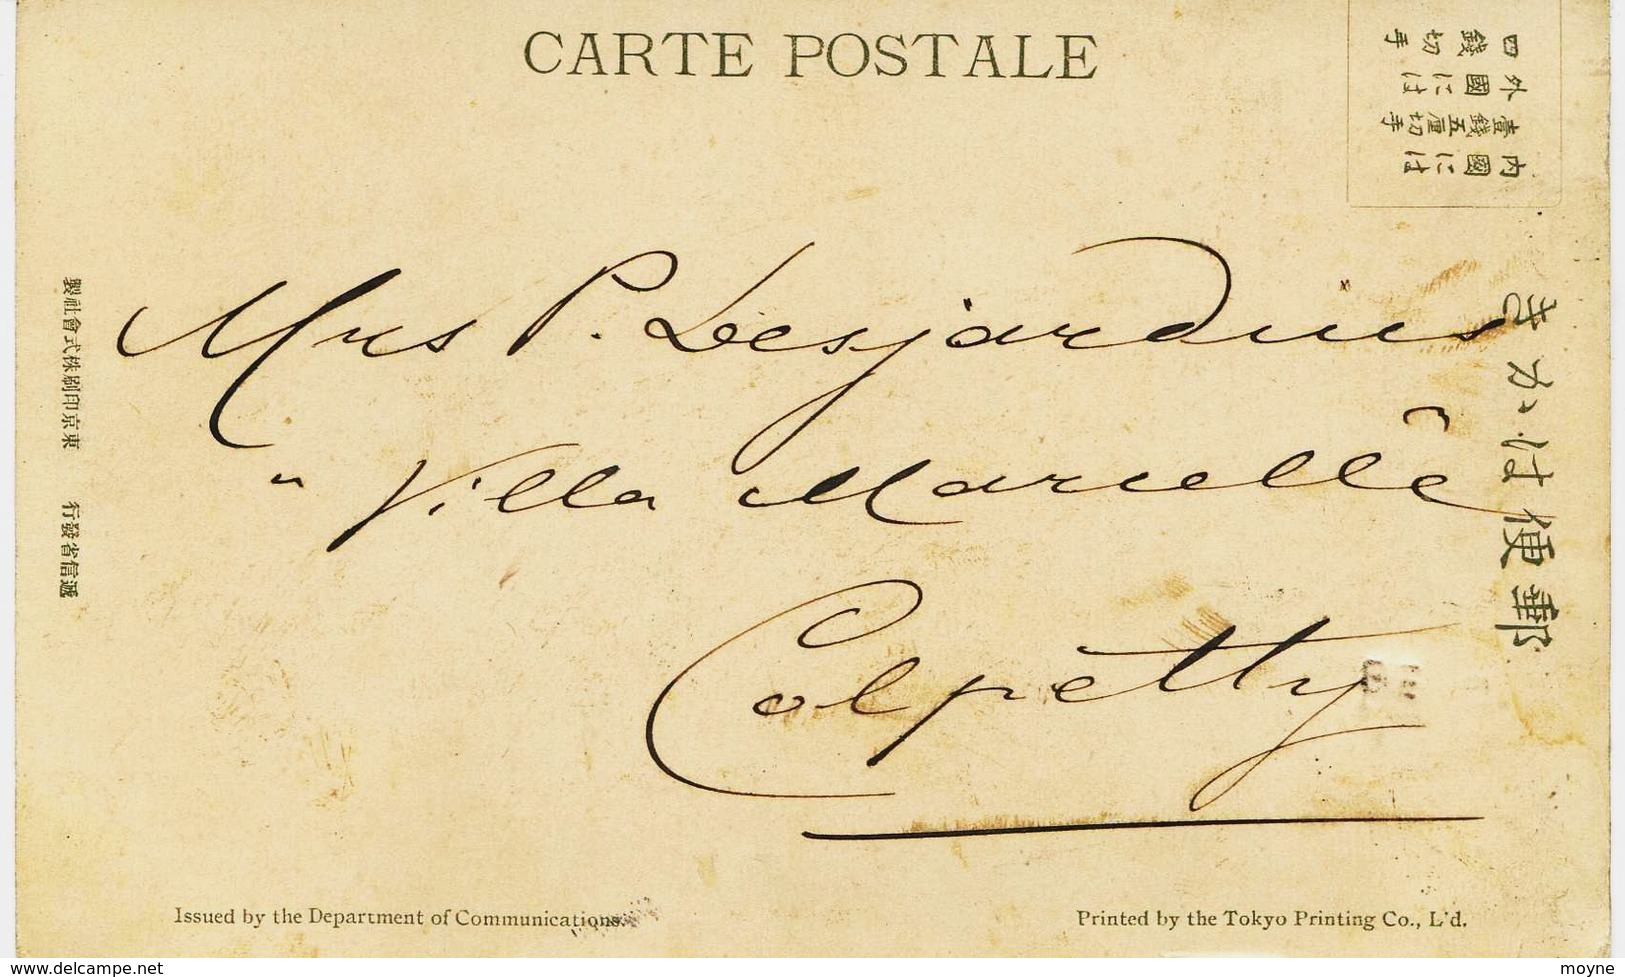 CARTE POSTALE
内國には
壹錢五厘切手
外國には
四錢切手
Mrs P. Desjardins
"Villa Marielle"
Colpetty
郵便はかき
遞信省發行 東京印刷株式會社製
Issued by the Department of Communications.
Printed by the Tokyo Printing Co., L'd.
www.delcampe.net
moyne